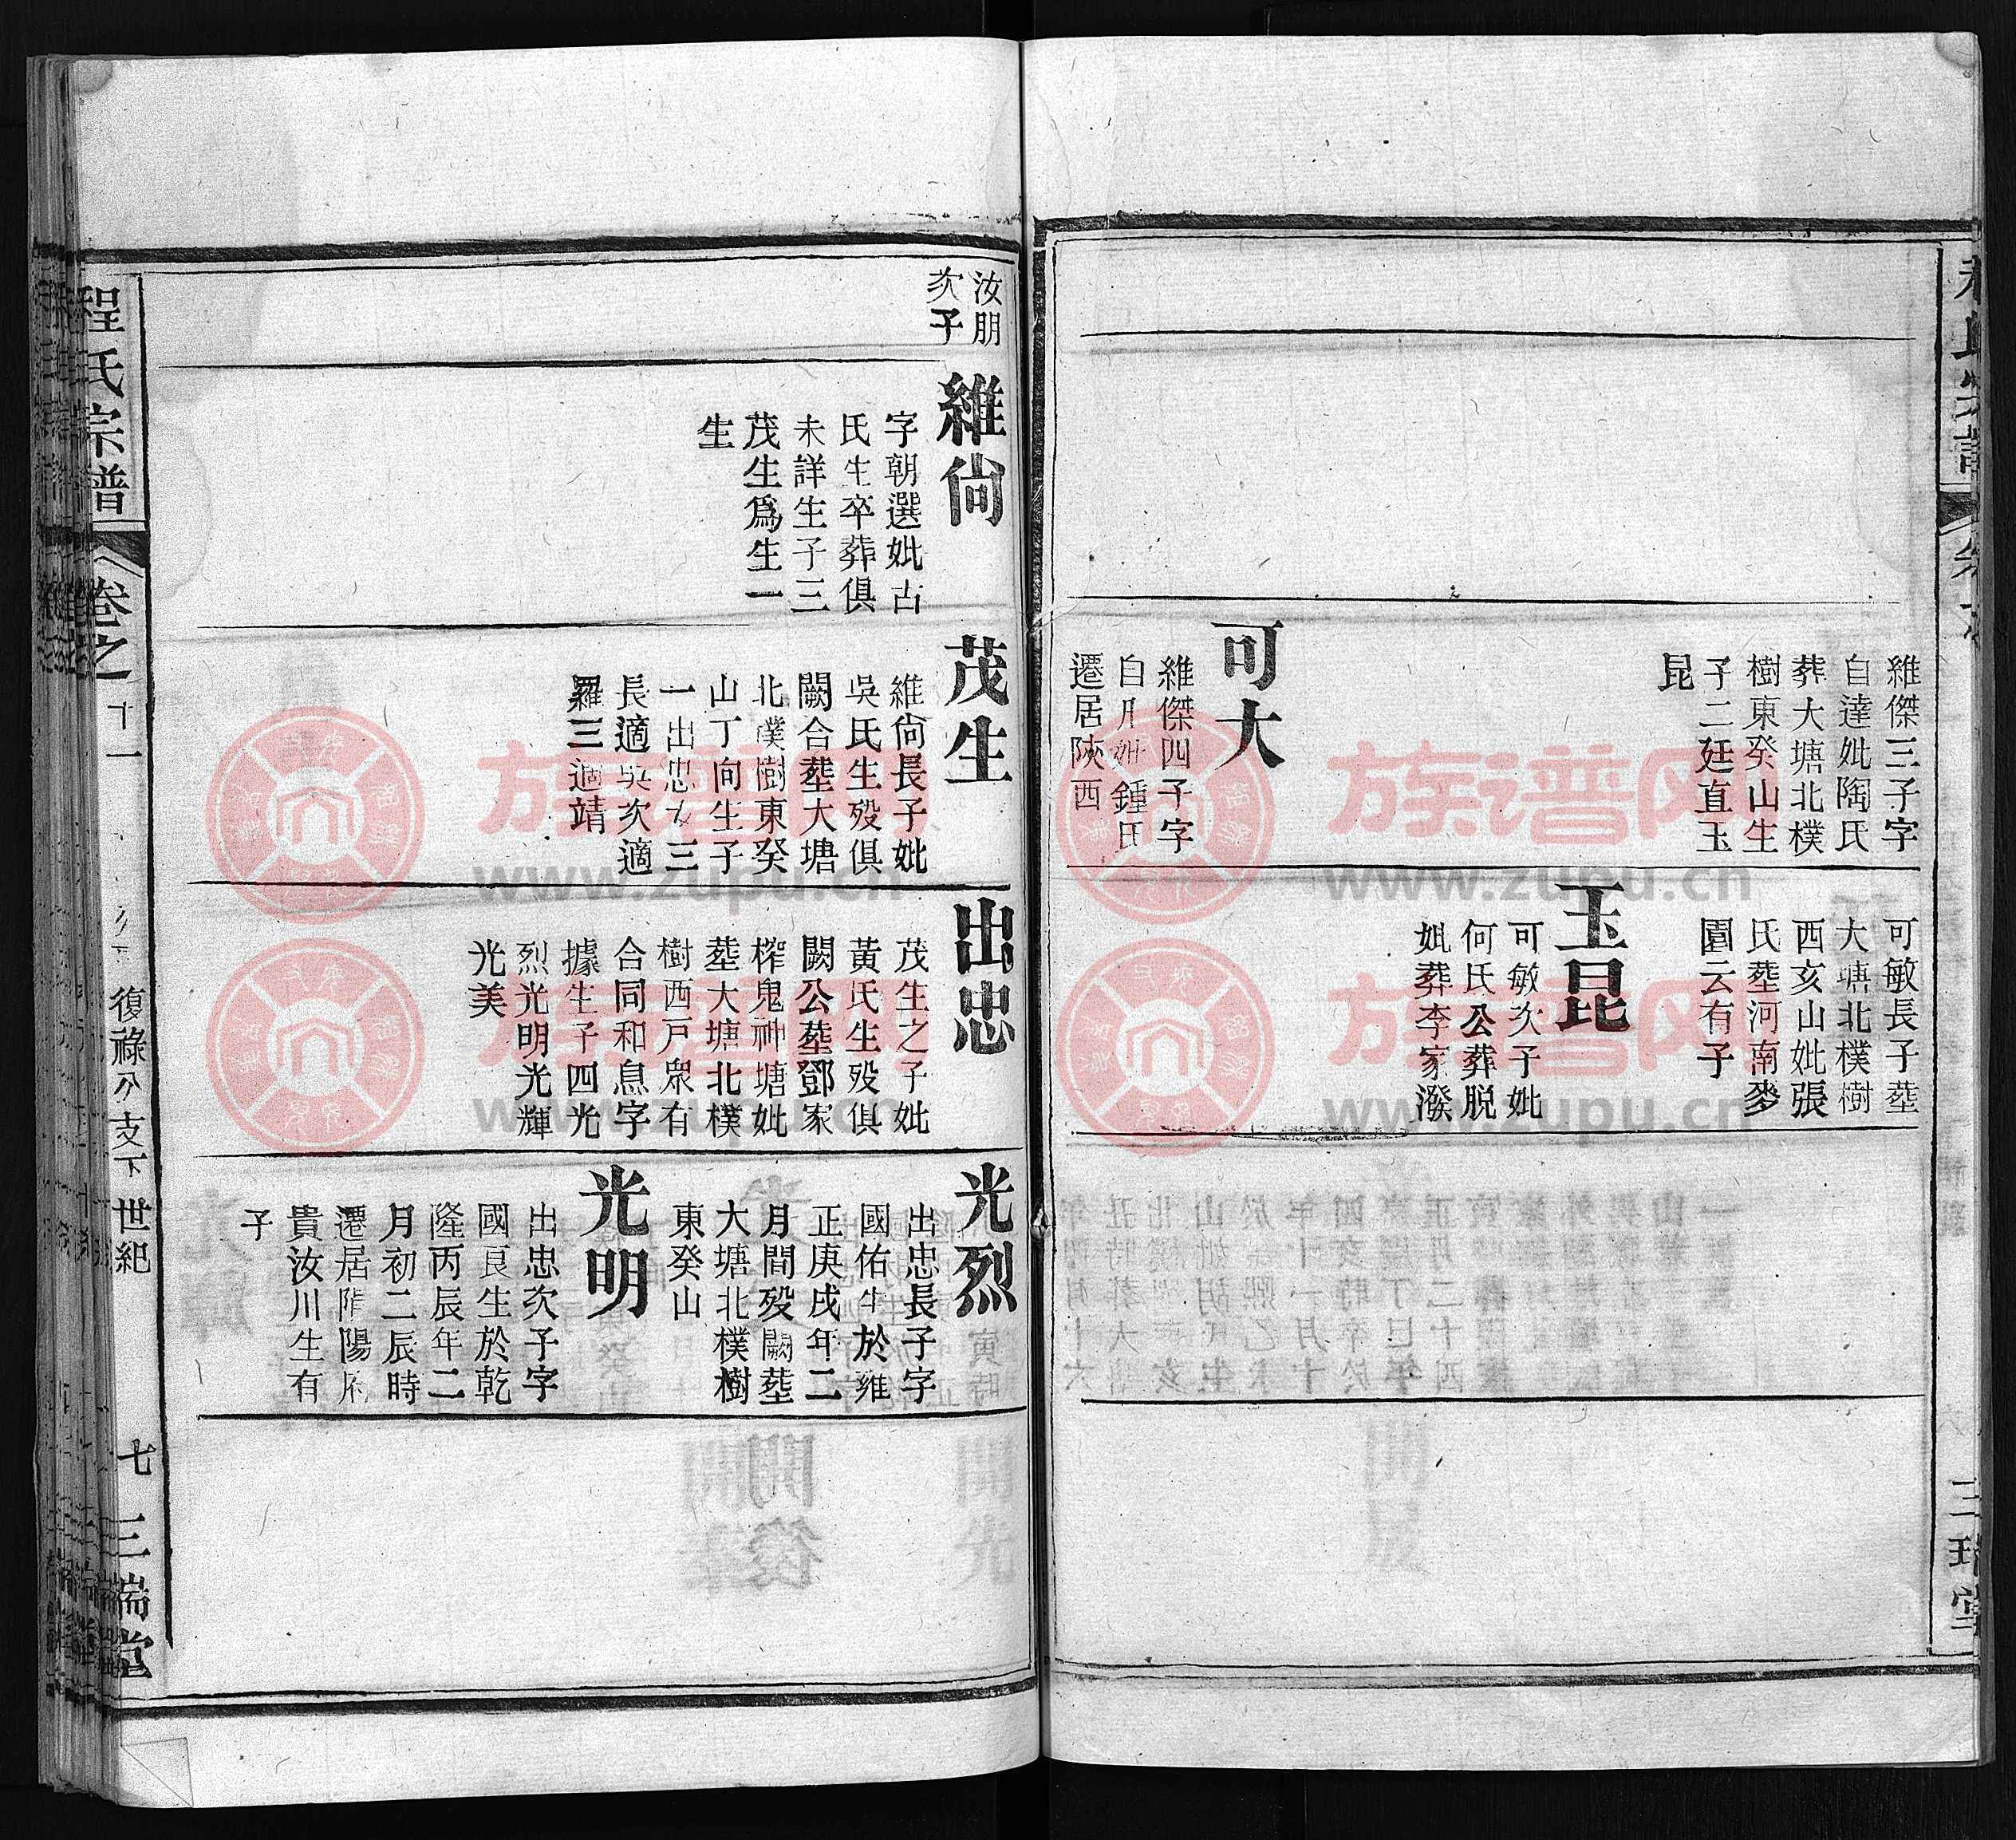 維傑三子字
自達妣陶氏
葬大塘北樸
樹東癸山生
子二廷直玉
昆
可大
維傑四子字
遷居陝西
可敏長子塟
大塘北樸樹
西亥山妣張
氏塟河南麥
園云有子
玉昆
可敏次子妣
何氏公葬脱
妣葬李家潑
三瑞堂
汝朋
次子
維尙
字朝選妣古
氏生卒葬俱
未詳生子三
茂生爲生一
生
茂生
維尙長子妣
吳氏生歿俱
闕合塟大塘
北樸樹東癸
山丁向生子
一出忠女三
長適吳次適
羅三適靖
出忠
茂生之子妣
黃氏生歿俱
闕公塟鄧家
榨鬼神塘妣
塟大塘北樸
樹西戸衆有
合同和息字
據生子四光
烈光明光輝
光美
光烈
出忠長子字
國佑生於雍
正庚戌年二
月間歿闕塟
大塘北樸樹
東癸山
光明
出忠次子字
國良生於乾
隆丙辰年二
月初二辰時
遷居階陽府
貴汝川生有
子
程氏宗譜
卷之十一
復祿分支下世紀
七
三瑞堂
族谱网
www.zupu.cn
族谱网
www.zupu.cn
族谱网
www.zupu.cn
族谱网
www.zupu.cn